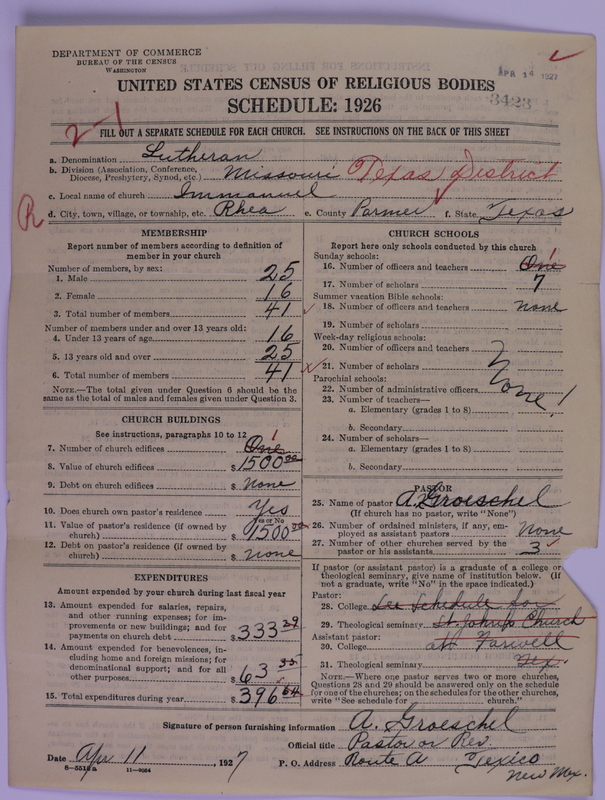 DEPARTMENT OF COMMERCE
BUREAU OF THE CENSUS
WASHINGTON
APR 14 1927
3423
UNITED STATES CENSUS OF RELIGIOUS BODIES
SCHEDULE: 1926
2-1
FILL OUT A SEPARATE SCHEDULE FOR EACH CHURCH. SEE INSTRUCTIONS ON THE BACK OF THIS SHEET
a. Denomination Lutheran
b. Division (Association, Conference, Diocese, Presbytery, Synod, etc.) Missouri Texas District
c. Local name of church Immanuel
R
d. City, town, village, or township, etc. Rhea e. County Parmer f. State Texas
MEMBERSHIP
Report number of members according to definition of
member in your church
Number of members, by sex:
1. Male 25
2. Female 16
3. Total number of members 41
Number of members under and over 13 years old:
4. Under 13 years of age 16
5. 13 years old and over 25
6. Total number of members 41
NOTE.—The total given under Question 6 should be
same as the total of males and females given under Question 3.
CHURCH BUILDINGS
See instructions, paragraphs 10 to 12
7. Number of church edifices One 1
8. Value of church edifices $1500 00
9. Debt on church edifices $ None
10. Does church own pastor's residence Yes
Yes or No
11. Value of pastor's residence (if owned by
church) $1500 00
12. Debt on pastor's residence (if owned by
church) $ none
EXPENDITURES
Amount expended by your church during last fiscal year
13. Amount expended for salaries, repairs,
and other running expenses; for im-
provements or new buildings; and for
payments on church debt $333 29
14. Amount expended for benevolences, in-
cluding home and foreign missions; for
denominational support; and for all
other purposes $63 35
15. Total expenditures during year $396 64
CHURCH SCHOOLS
Report here only schools conducted by this church
Sunday schools:
16. Number of officers and teachers One 1
17. Number of scholars 7
Summer vacation Bible schools:
18. Number of officers and teachers none
19. Number of scholars
Week-day religious schools:
20. Number of officers and teachers
21. Number of scholars
None!
Parochial schools:
22. Number of administrative officers
23. Number of teachers—
a. Elementary (grades 1 to 8)
b. Secondary
24. Number of scholars—
a. Elementary (grades 1 to 8)
b. Secondary
PASTOR
25. Name of pastor A. Groeschel
(If church has no pastor, write "None")
26. Number of ordained ministers, if any, em-
ployed as assistant pastors None
27. Number of other churches served by the
pastor or his assistants 3
If pastor (or assistant pastor) is a graduate of a college or
theological seminary, give name of institution below. (If
not a graduate, write "No" in the space indicated.)
Pastor:
28. College See Schedule for
29. Theological seminary St. Johns Church
Assistant pastor:
30. College at Farwell
31. Theological seminary Tex.
NOTE.—Where one pastor serves two or more churches,
Questions 28 and 29 should be answered only on the schedule
for one of the churches; on the schedules for the other churches,
write "See schedule for church."
Signature of person furnishing information A. Groeschel
Official title Pastor or Rev.
Date Apr 11, 1927 P. O. Address Route A Texico
New Mex.
8—5518a 11—9064